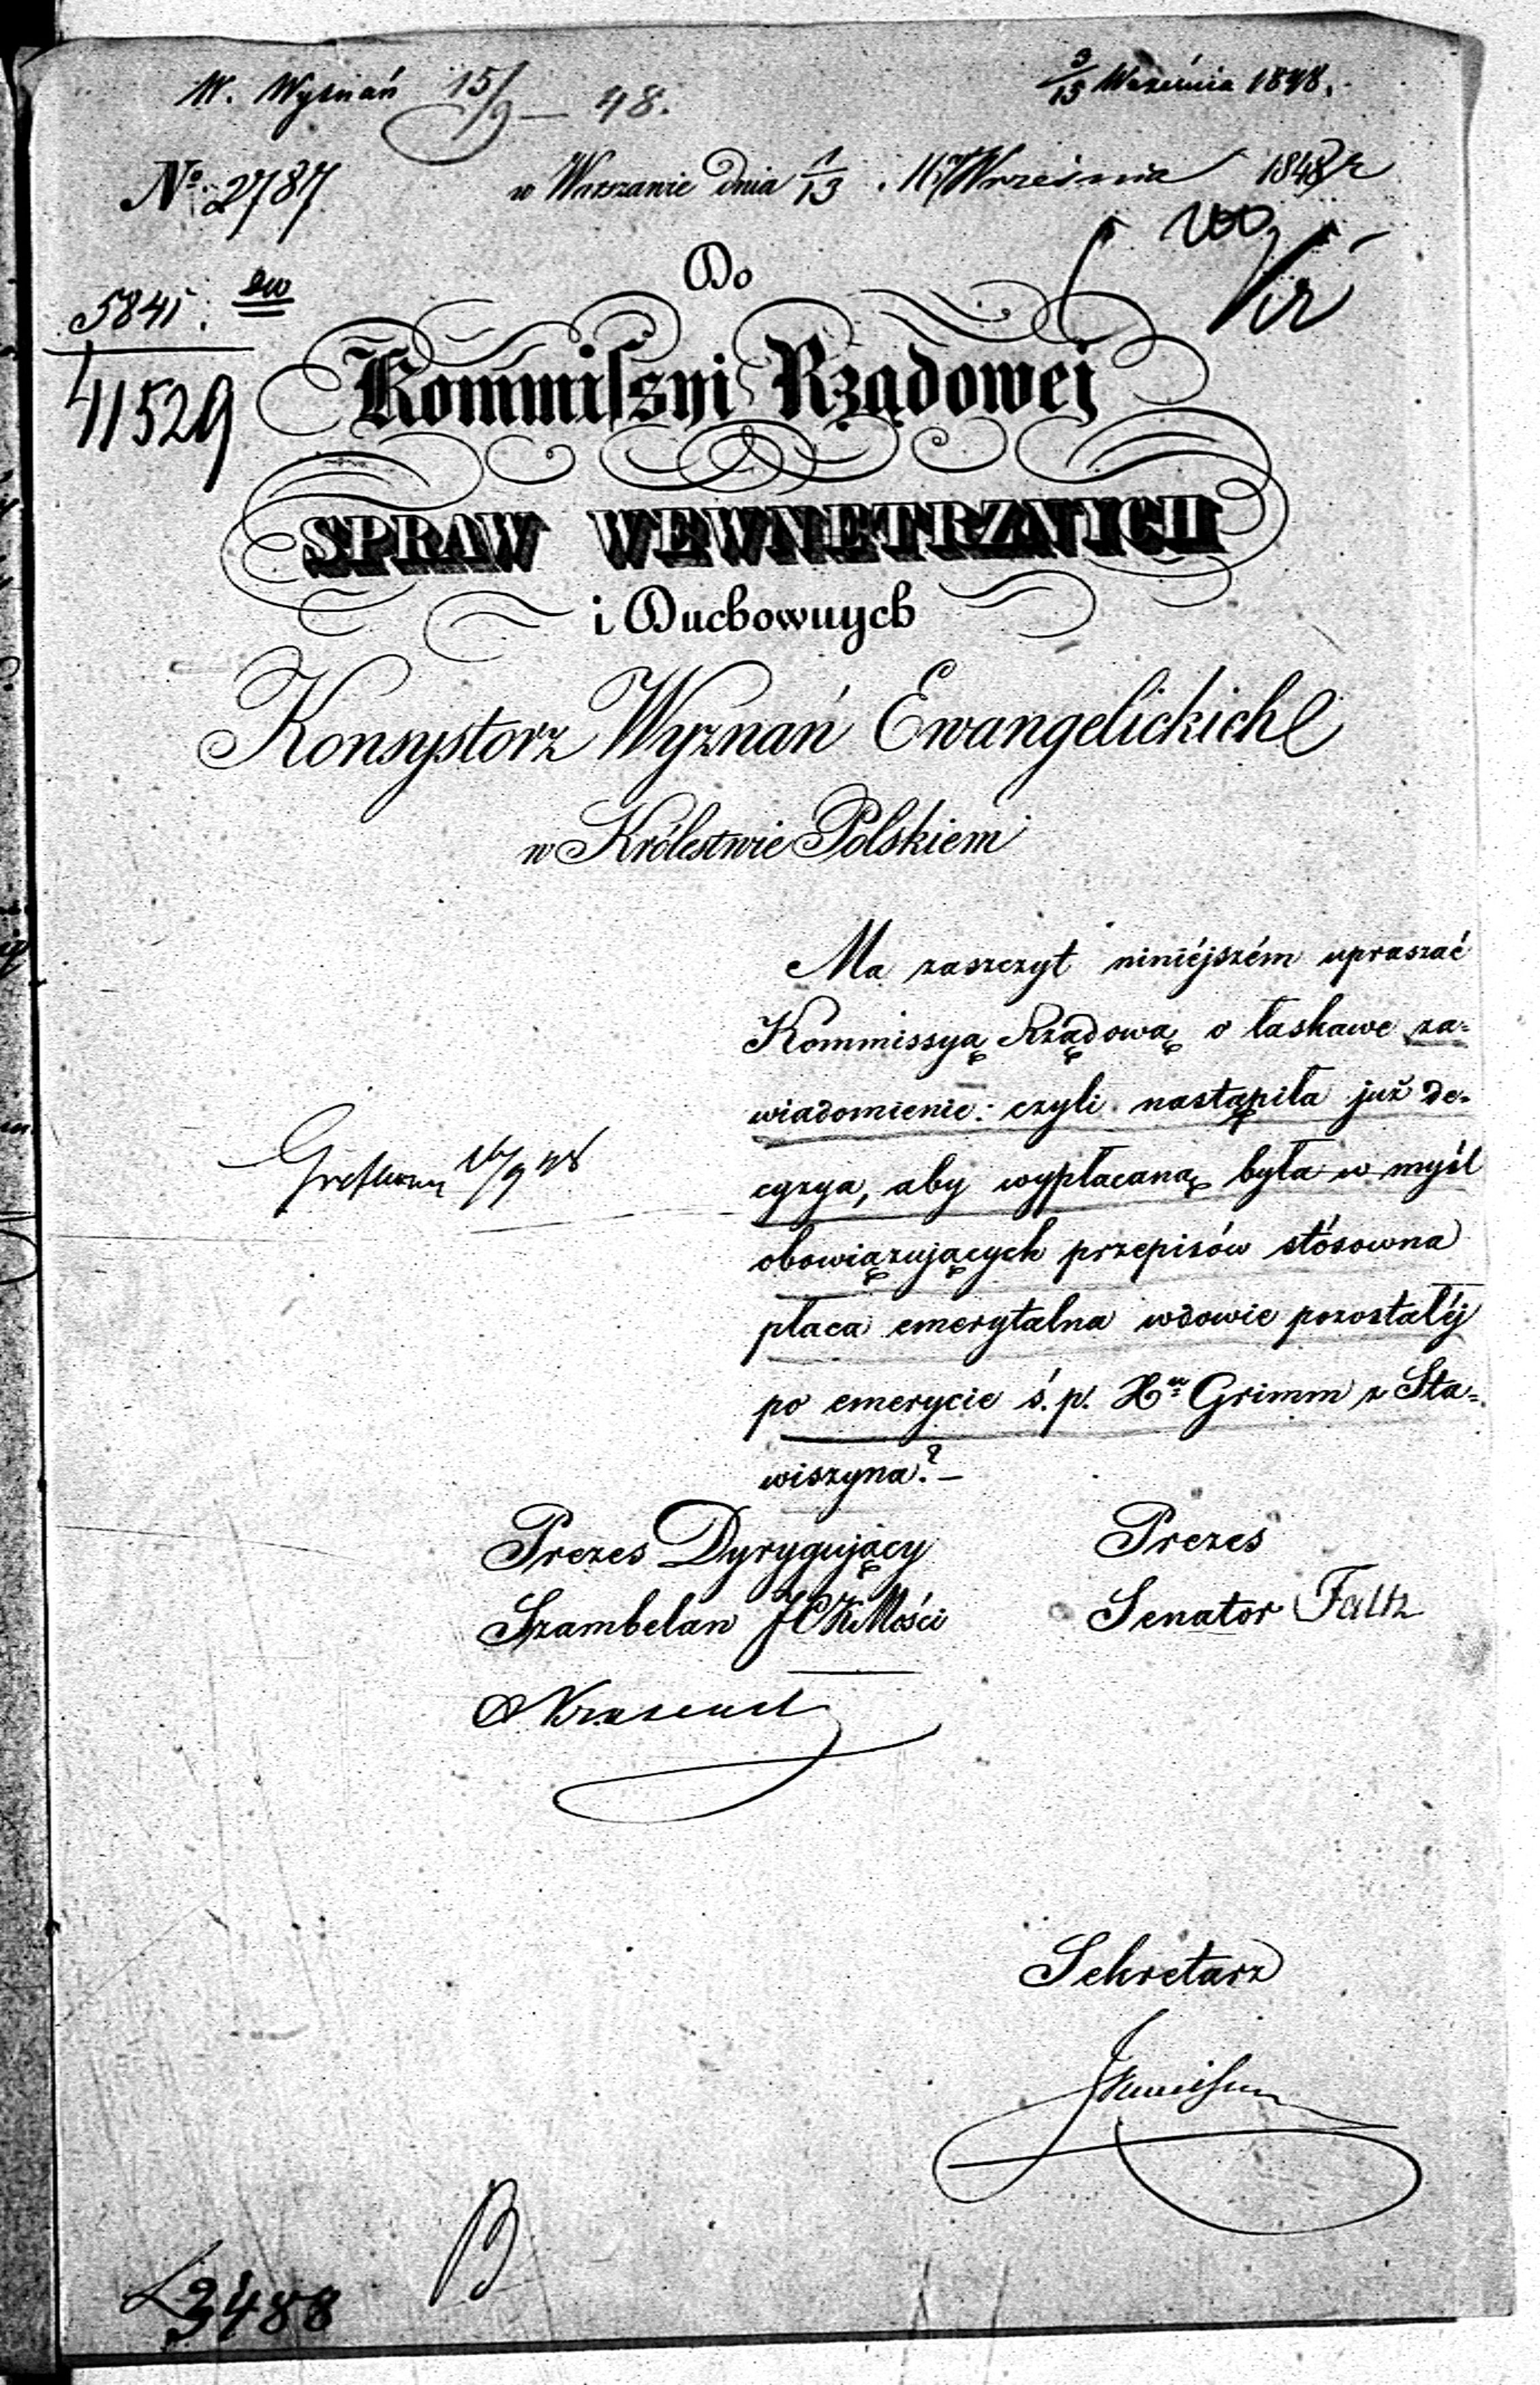 W. Wyznań 15/9 — 48.
3/15 Września 1848.
No. 2787
w Warszawie dnia 1/13 Września 1848 r
5841.
41529
Do
Kommissyi Rządowej
SPRAW WEWNETRZNYCH
i Duchownych
Konsystorz Wyznań Ewangelickich
w Królestwie Polskiem
Ma zaszczyt niniéjszém upraszać
Kommissyą Rządową o łaskawe za-
wiadomienie: czyli nastąpiła już de-
cyzya, aby wypłacaną była w myśl
obowiązujących przepisów stósowna
płaca emerytalna wdowie pozostałéj
po emerycie ś.p. Xu Grimm z Sta-
wiszyna? —
16/9 48
Prezes Dyrygujący
Szambelan JCKMości
Prezes
Senator Faltz
Sekretarz
B
23488